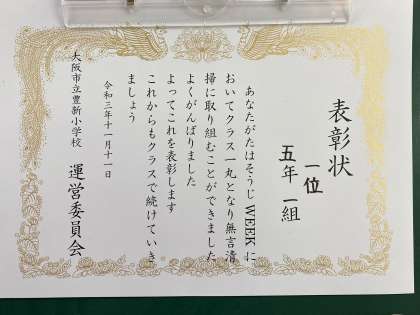 表彰状
一位
五年一組
あなたがたはそうじWEEKに
おいてクラス一丸となり無言清
掃に取り組むことができました
よくがんばりました
よってこれを表彰します
これからもクラスで続けていき
ましょう
令和三年十一月十一日
大阪市立豊新小学校
運営委員会